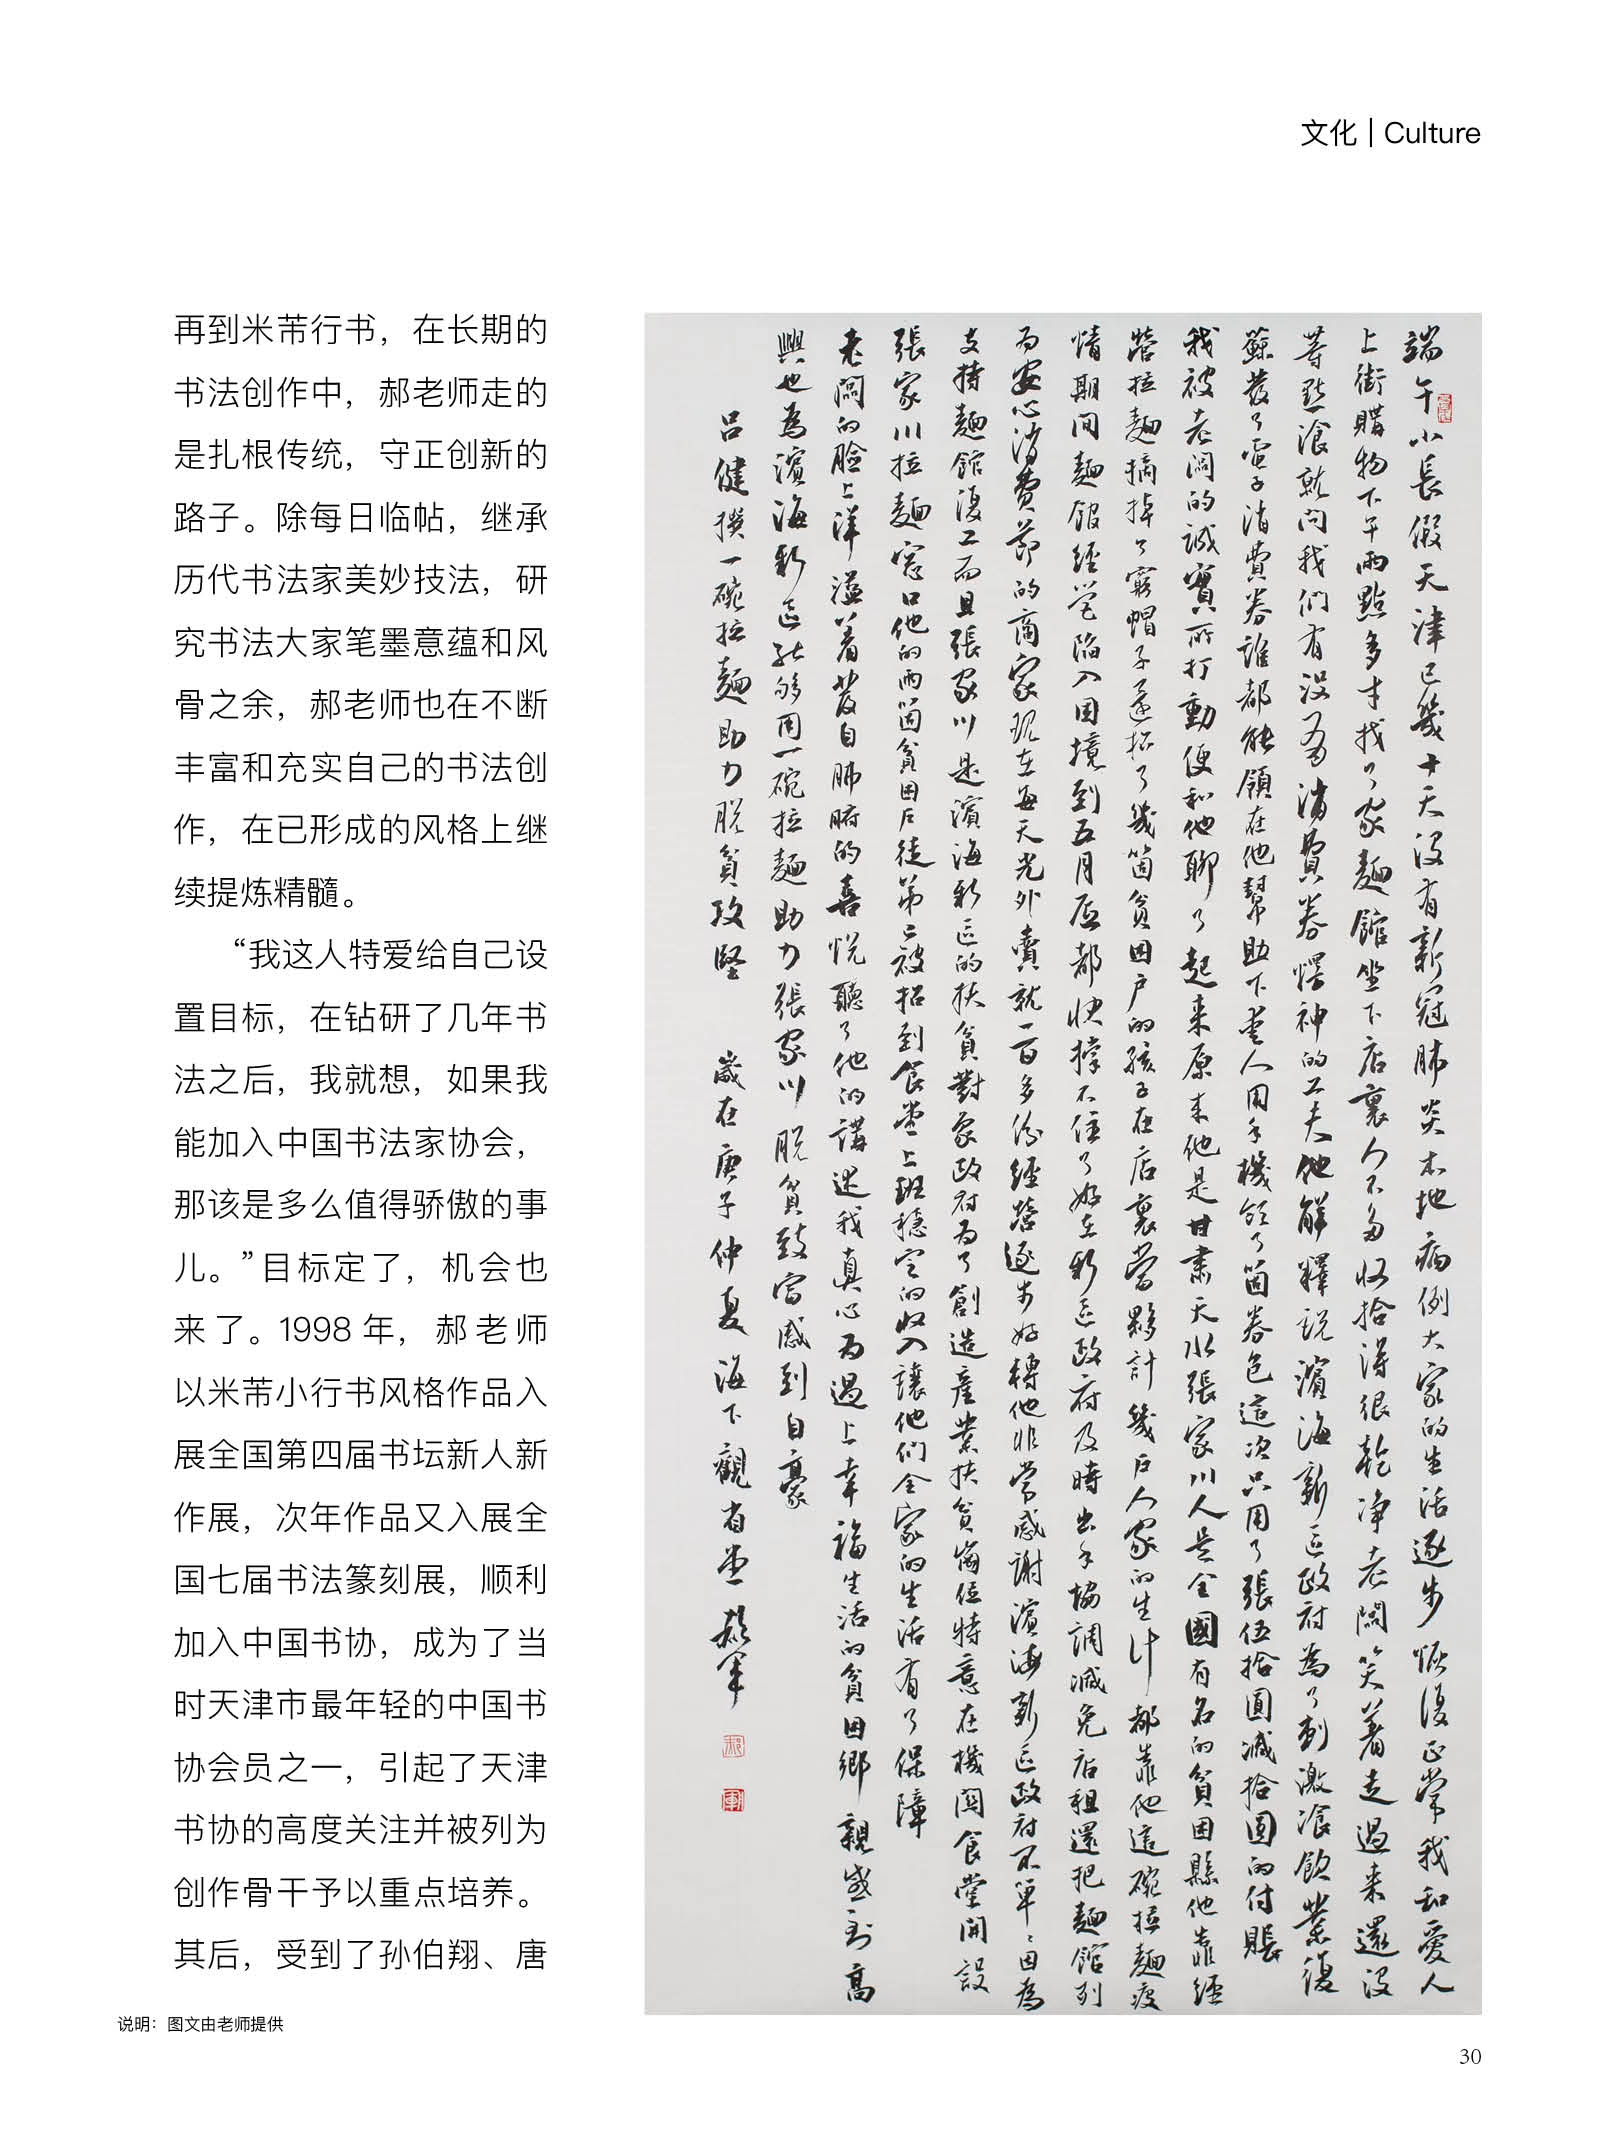 文化 | Culture
再到米芾行书，在长期的
书法创作中，郝老师走的
是扎根传统，守正创新的
路子。除每日临帖，继承
历代书法家美妙技法，研
究书法大家笔墨意蕴和风
骨之余，郝老师也在不断
丰富和充实自己的书法创
作，在已形成的风格上继
续提炼精髓。
“我这人特爱给自己设
置目标，在钻研了几年书
法之后，我就想，如果我
能加入中国书法家协会，
那该是多么值得骄傲的事
儿。”目标定了，机会也
来了。1998 年，郝老师
以米芾小行书风格作品入
展全国第四届书坛新人新
作展，次年作品又入展全
国七届书法篆刻展，顺利
加入中国书协，成为了当
时天津市最年轻的中国书
协会员之一，引起了天津
书协的高度关注并被列为
创作骨干予以重点培养。
其后，受到了孙伯翔、唐
端午小長假天津已幾十天沒有新冠肺炎本地病例大家的生活逐步恢復正常我和愛人
上街購物下午兩點多才找了家麵館坐下店裏人不多收拾得很乾净老闆笑着走過来還没
等點飡就问我们有没有消費券愣神的工夫他解釋説濱海新區政府為了刺激飡飲業復
蘇發了電子消費券誰都能領在他幫助下愛人用手機領了箇券包這次只用了張伍拾圓減拾圓的付賬
我被老闆的誠實所打動便和他聊了起来原来他是甘肅天水張家川人是全國有名的貧困縣他靠經
營拉麵摘掉了窮帽子還招了幾箇貧困户的孩子在店裏當夥計幾户人家的生计都靠他這碗拉麵疫
情期间麵館經営陷入困境到五月底都快撑不住了好在新區政府及時出手協調減免店租還把麵館列
为安心消費節的商家现在每天光外賣就一百多份經營逐步好轉他非常感谢濱海新區政府不單單因為
支持麵館復工而且張家川是濱海新區的扶貧對象政府为了創造產業扶貧崗位特意在機関食堂開設
張家川拉麵窗口他的两箇貧困户徒弟已被招到食堂上班穩定的收入讓他们全家的生活有了保障
老闆的臉上洋溢着發自肺腑的喜悦聽了他的講述我真心为過上幸福生活的貧困鄉親感到高
興也為濱海新區能够用一碗拉麵助力張家川脱貧致富感到自豪
吕健撰一碗拉麵助力脱貧攻堅 歲在庚子仲夏海下觀省堂郝軍
说明：图文由老师提供
30